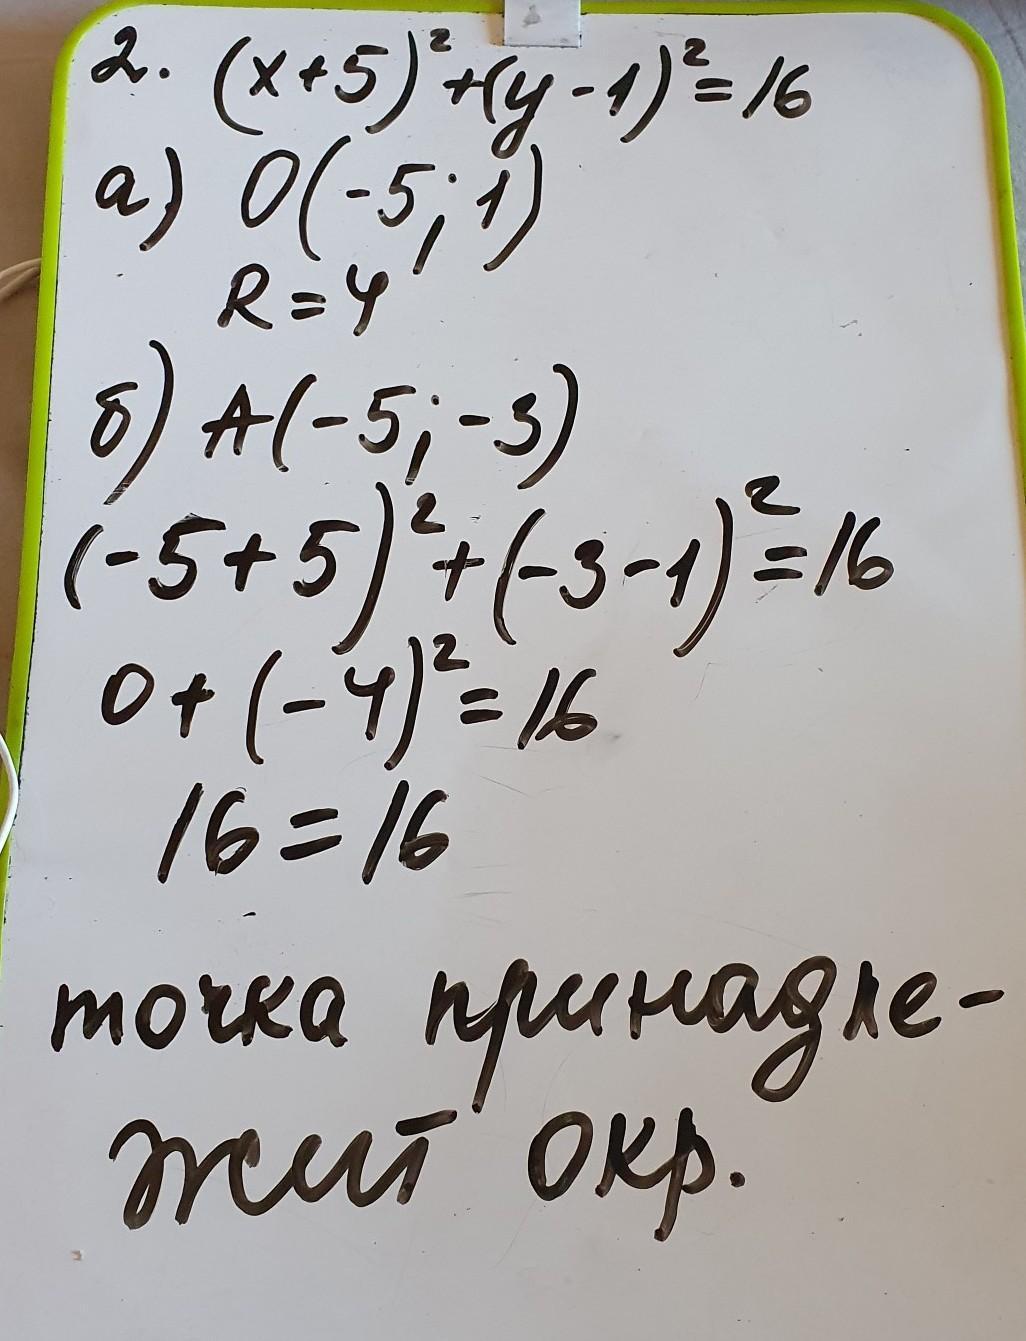 2. (x+5)²+(y-1)²=16
а) O(-5;1)
R=4
б) A(-5;-3)
(-5+5)²+(-3-1)²=16
0+(-4)²=16
16=16
точка принадле-
жит окр.